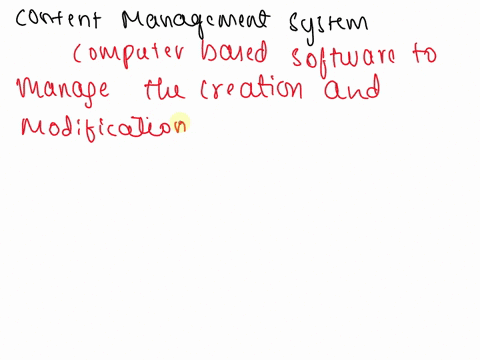 Content Management System
Computer based software to
Manage the creation and
Modification